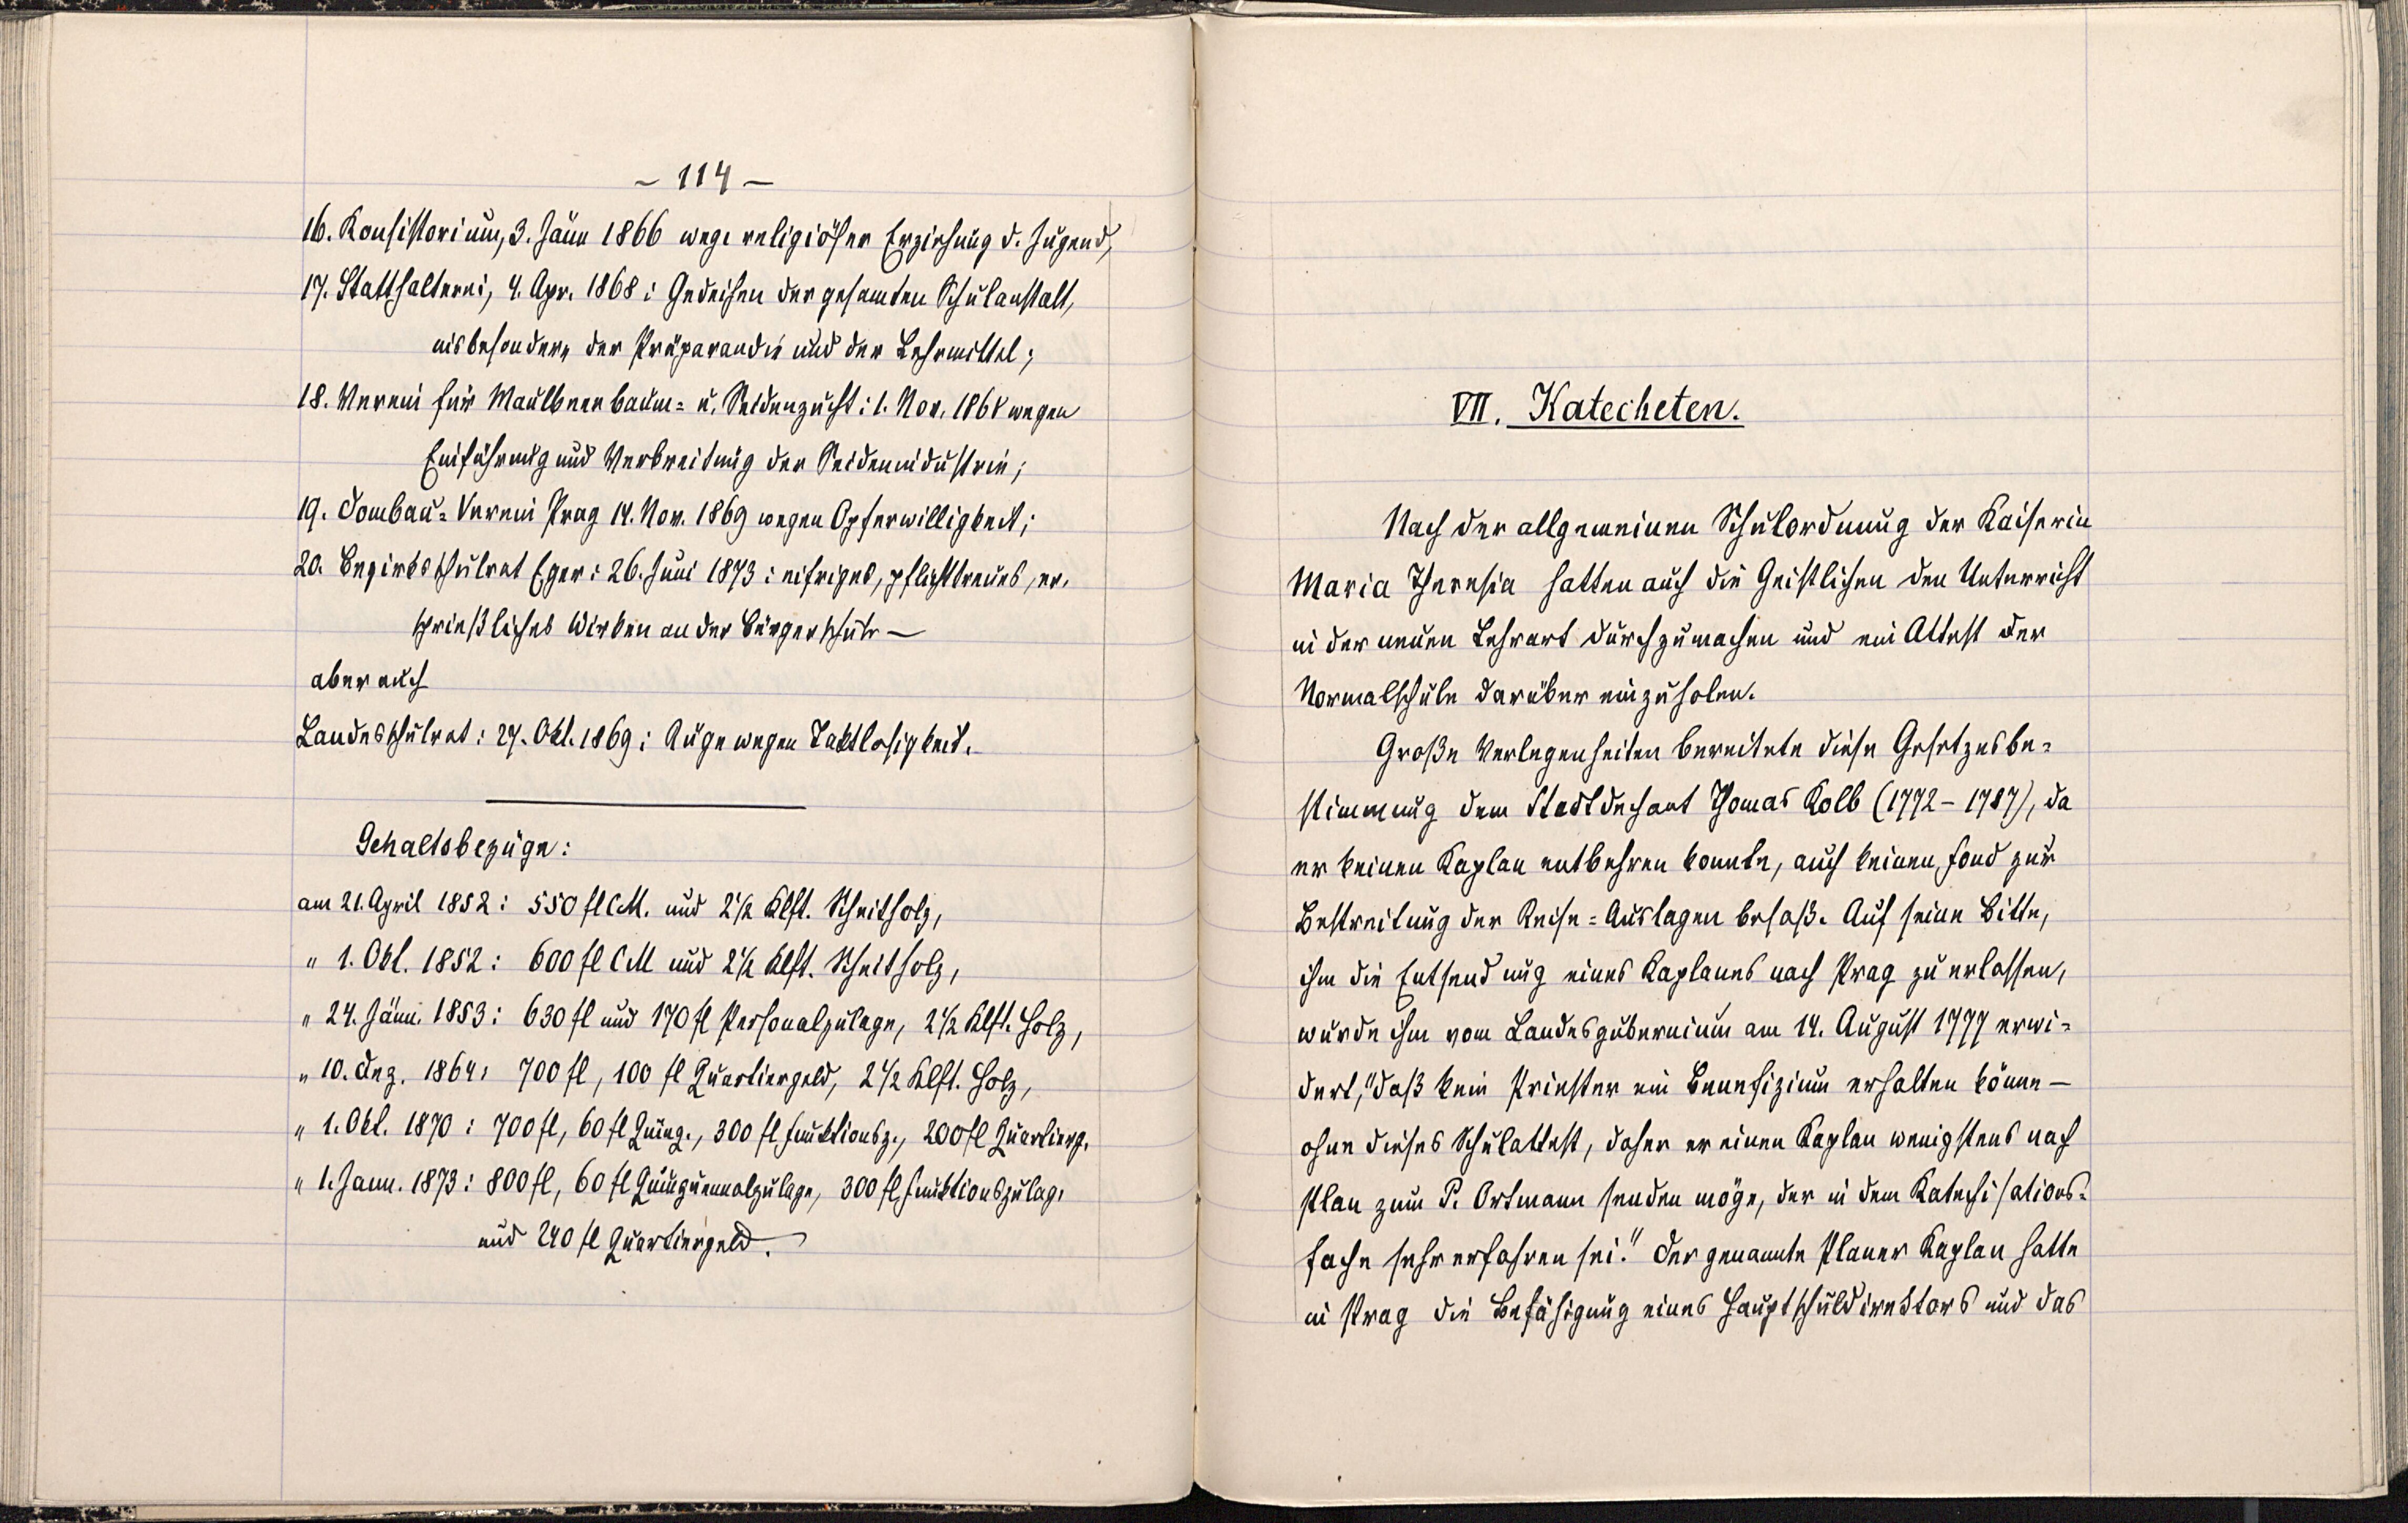 – 114 –
16. Konsistorium, 3. Jänn 1866 wege religiöser Erziehung d. Jugend,
17. Statthalterei, 4. Apr. 1868: Gedeihen der gesamten Schulanstalt,
insbesondere der Präparandie und der Lehrmittel;
18. Verein für Maulbeerbaum= u. Seidenzucht: 1. Nov. 1868 wegen
Einführung und Verbreitung der Seidenindustrie;
19. Dombau=Verein Prag 14. Nov. 1869 wegen Opferwilligkeit;
20. Bezirksschulrat Eger: 26. Juni 1873: eifriges, pflichttreues, er-
sprießliches Wirken an der Bürgerschule –
aber auch
Landesschulrat: 27. Okt. 1869: Rüge wegen Taktlosigkeit.
Gehaltsbezüge:
am 21. April 1852: 550 fl CM. und 2½ Klft. Scheitholz,
" 1. Okt. 1852: 600 fl CM und 2½ Klft. Scheitholz,
" 24. Jänn. 1853: 630 fl und 170 fl Personalzulage, 2½ Klft. Holz,
" 10. Dez. 1864: 700 fl, 100 fl Quartiergeld, 2½ Klft. Holz,
" 1. Okt. 1870: 700 fl, 60 fl Quinq., 300 fl Funktionsz., 200 fl Quartierg.
" 1. Jann. 1873: 800 fl, 60 fl Quinquennalzulage, 300 fl Funktionszulage
und 240 fl Quartiergeld.
VII. Katecheten.
Nach der allgemeinen Schulordnung der Kaiserin
Maria Theresia hatten auch die Geistlichen den Unterricht
in der neuen Lehrart durchzumachen und ein Attest der
Normalschule darüber einzuholen.
Große Verlegenheiten bereitete diese Gesetzesbe=
stimmung dem Stadtdechant Thomas Kolb (1772 – 1787), da
er keinen Kaplan entbehren konnte, auch keinen Fond zur
Bestreitung der Reise=Auslagen besaß. Auf seine Bitte,
ihm die Entsendung eines Kaplanes nach Prag zu erlassen,
wurde ihm vom Landesgubernium am 14. August 1777 erwi=
dert, "daß kein Priester ein Benefizium erhalten könne –
ohne dieses Schulattest, daher er einen Kaplan wenigstens nach
Plan zum P. Ortmann senden möge, der in dem Katechisations=
fache sehr erfahren sei." Der genannte Planer Kaplan hatte
in Prag die Befähigung eines Hauptschuldirektors und das